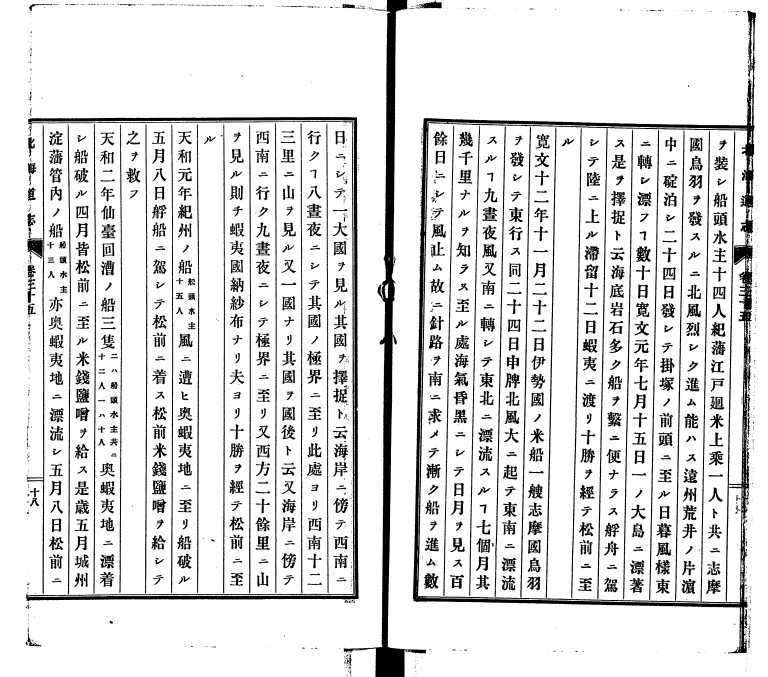 ヲ裝シ船頭水主十四人紀藩江戸廻米上乘一人ト共ニ志摩
國鳥羽ヲ發スルニ北風烈シク進ム能ハス遠州荒井ノ片濱
中ニ碇泊シ二十四日發シテ掛塚ノ前頭ニ至ル日暮風様東
ニ轉シ漂フヿ數十日寛文元年七月十五日一ノ大島ニ漂著
ス是ヲ擇捉ト云海底岩石多ク船ヲ繫ニ便ナラス艀舟ニ駕
シテ陸ニ上ル滯留十二日蝦夷ニ渡リ十勝ヲ經テ松前ニ至
ル
寛文十二年十一月二十二日伊勢國ノ米船一艘志摩國鳥羽
ヲ發シテ東行ス同二十四日申牌北風大ニ起テ東南ニ漂流
スルヿ九晝夜風又南ニ轉シテ東北ニ漂流スルヿ七個月其
幾千里ナルヲ知ラス至ル處海氣昏黑ニシテ日月ヲ見ス百
餘日ニシテ風止ム故ニ針路ヲ南ニ求メテ漸ク船ヲ進ム數
日ニシテ一大國ヲ見ル其國ヲ擇捉ト云海岸ニ傍テ西南ニ
行クヿ八晝夜ニシテ其國ノ極界ニ至リ此處ヨリ西南十二
三里ニ山ヲ見ル又一國ナリ其國ヲ國後ト云又海岸ニ傍テ
西南ニ行ク九晝夜ニシテ極界ニ至リ又西方二十餘里ニ山
ヲ見ル則チ蝦夷國納紗布ナリ夫ヨリ十勝ヲ經テ松前ニ至
ル
天和元年紀州ノ船船頭水主十五人風ニ遭ヒ奥蝦夷地ニ至リ船破ル
五月八日艀船ニ駕シテ松前ニ着ス松前米錢鹽噌ヲ給シテ
之ヲ救フ
天和二年仙臺回漕ノ船三隻二ハ船頭水主共ニ十二人一ハ十人奥蝦夷地ニ漂着
シ船破ル四月皆松前ニ至ル米錢鹽噌ヲ給ス是歳五月城州
淀藩管内ノ船船頭水主十三人亦奥蝦夷地ニ漂流シ五月八日松前ニ
北海道志
卷三十五
十八